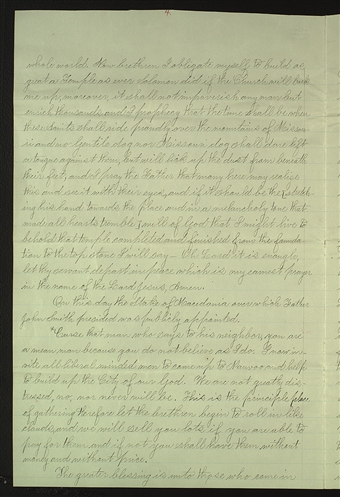 4.
whole world. Now brethren I obligate myself to build as
great a Temple as ever Solomon did if the Church will back
me up, moreover, it shall not impoverish any man but
enrich thousands, and I prophecy that the time shall be when
these saints shall ride proudly over the mountains of Missou
ri and no Gentile dog nor Missouri dog shall dare lift
a tongue against them, but will lick up the dust from beneath
their feet, and I pray the Father that many here may realize
this and see it with their eyes, and if it should be the stretch
ing his hand towards the place and in a melancholy tone that
made all hearts tremble, will of God that I might live to
behold that temple completed and finished from the founda
tion to the top stone I will say — Oh Lord it is enough,
let thy servant depart in peace which is my earnest prayer
in the name of the Lord Jesus, Amen.
On this day the Stake of Macedonia over which Father
John Smith presided was publicly appointed.
"Cursed that man who says to his neighbor, you are
a mean man because you do not believe as I do. I now in
vite all liberal minded men to come up to Nauvoo and help
to build up the City of our God. We are not greatly dis
tressed, no, nor never will be. This is the principle place
of gathering therefore let the brethren begin to roll in like
clouds and we will sell you lots if you are able to
pay for them and if not you shall have them without
money and without price.
The greater blessing is unto those who come in